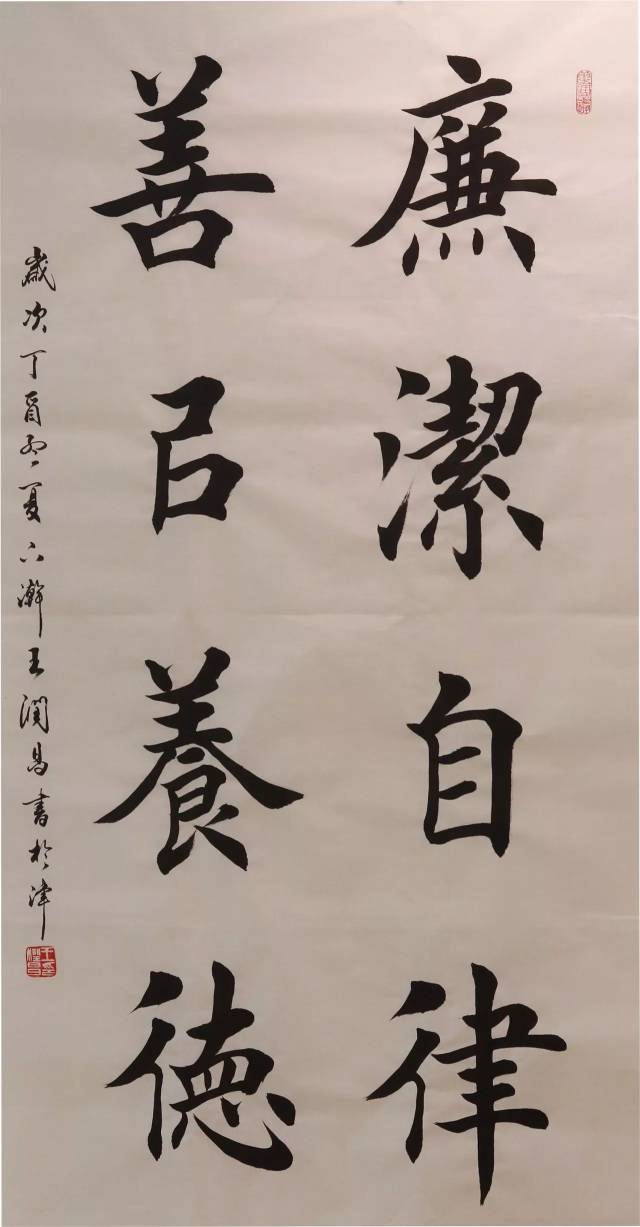 廉潔自律
善㠯養德
歲次丁酉孟夏下澣王潤昌書於津